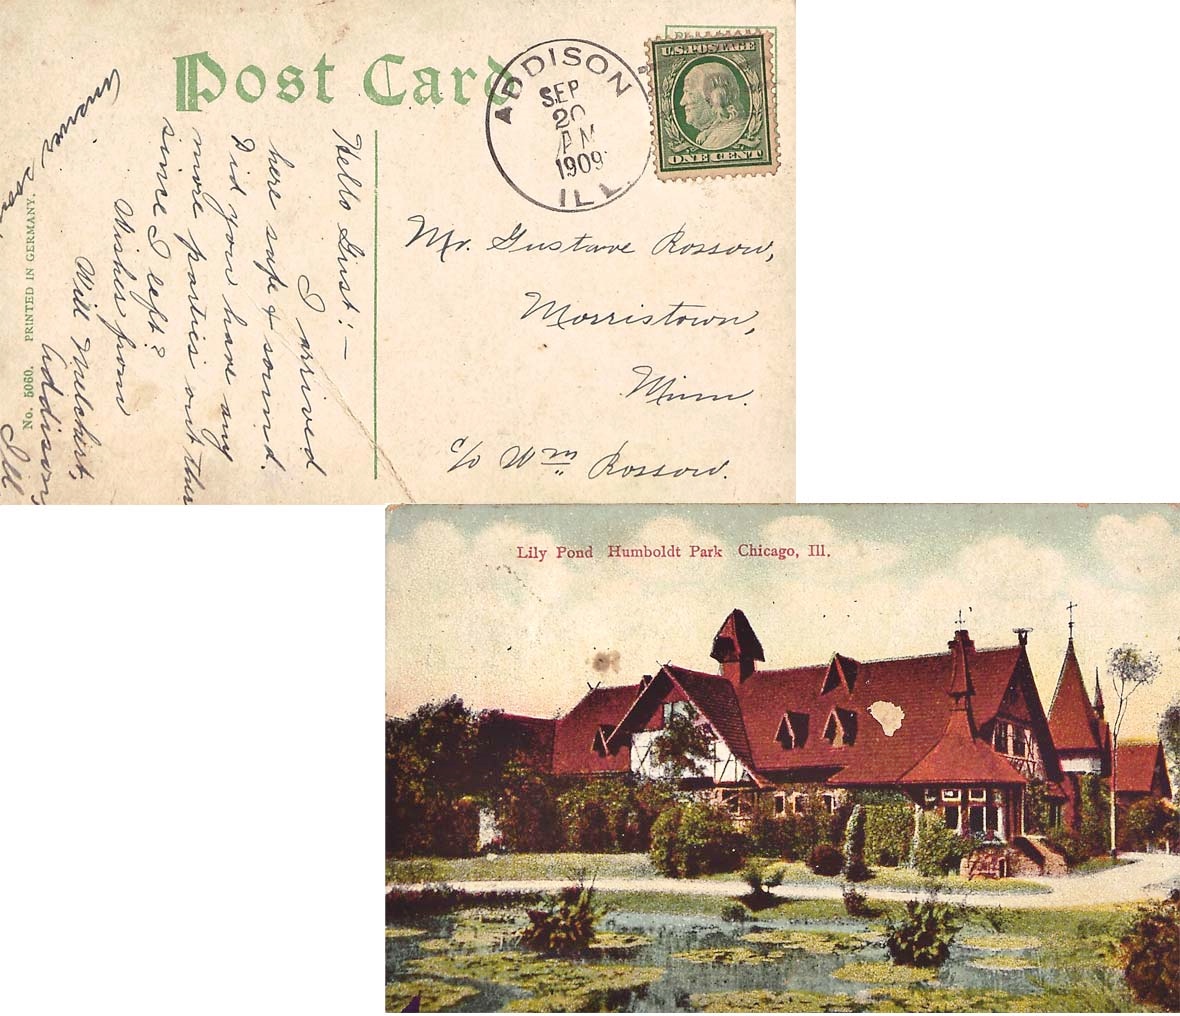 Post Card
ADDISON
SEP
20
AM
1909
ILL
U.S. POSTAGE
ONE CENT
Hello Gust:—
I arrived
here safe & sound.
Did you have any
more parties out there
since I left?
Wishes from
Will
Addison,
Ill
Answer soon.
No. 5060. PRINTED IN GERMANY.
Mr. Gustave Rossow,
Morristown,
Minn.
c/o Wm Rossow.
Lily Pond Humboldt Park Chicago, Ill.